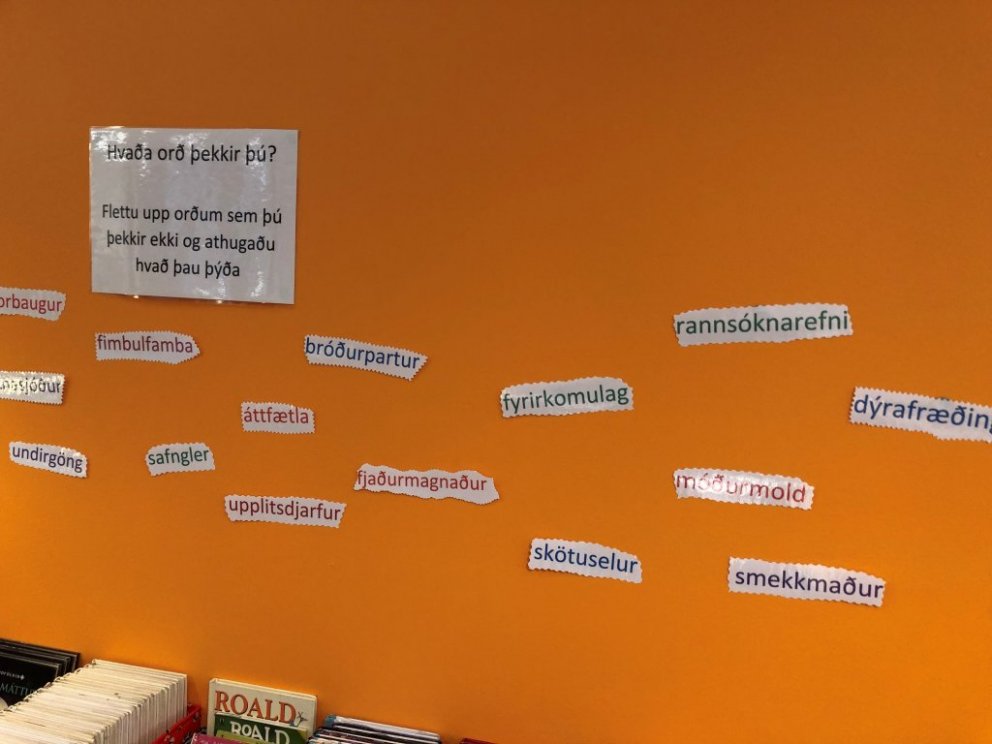 Hvaða orð þekkir þú?
Flettu upp orðum sem þú
þekkir ekki og athugaðu
hvað þau þýða
orbaugur
rannsóknarefni
fimbulfamba
bróðurpartur
fyrirkomulag
dýrafræðing
áttfætla
undirgöng
safngler
fjaðurmagnaður
móðurmold
upplitsdjarfur
skötuselur
smekkmaður
ROALD
ROALD